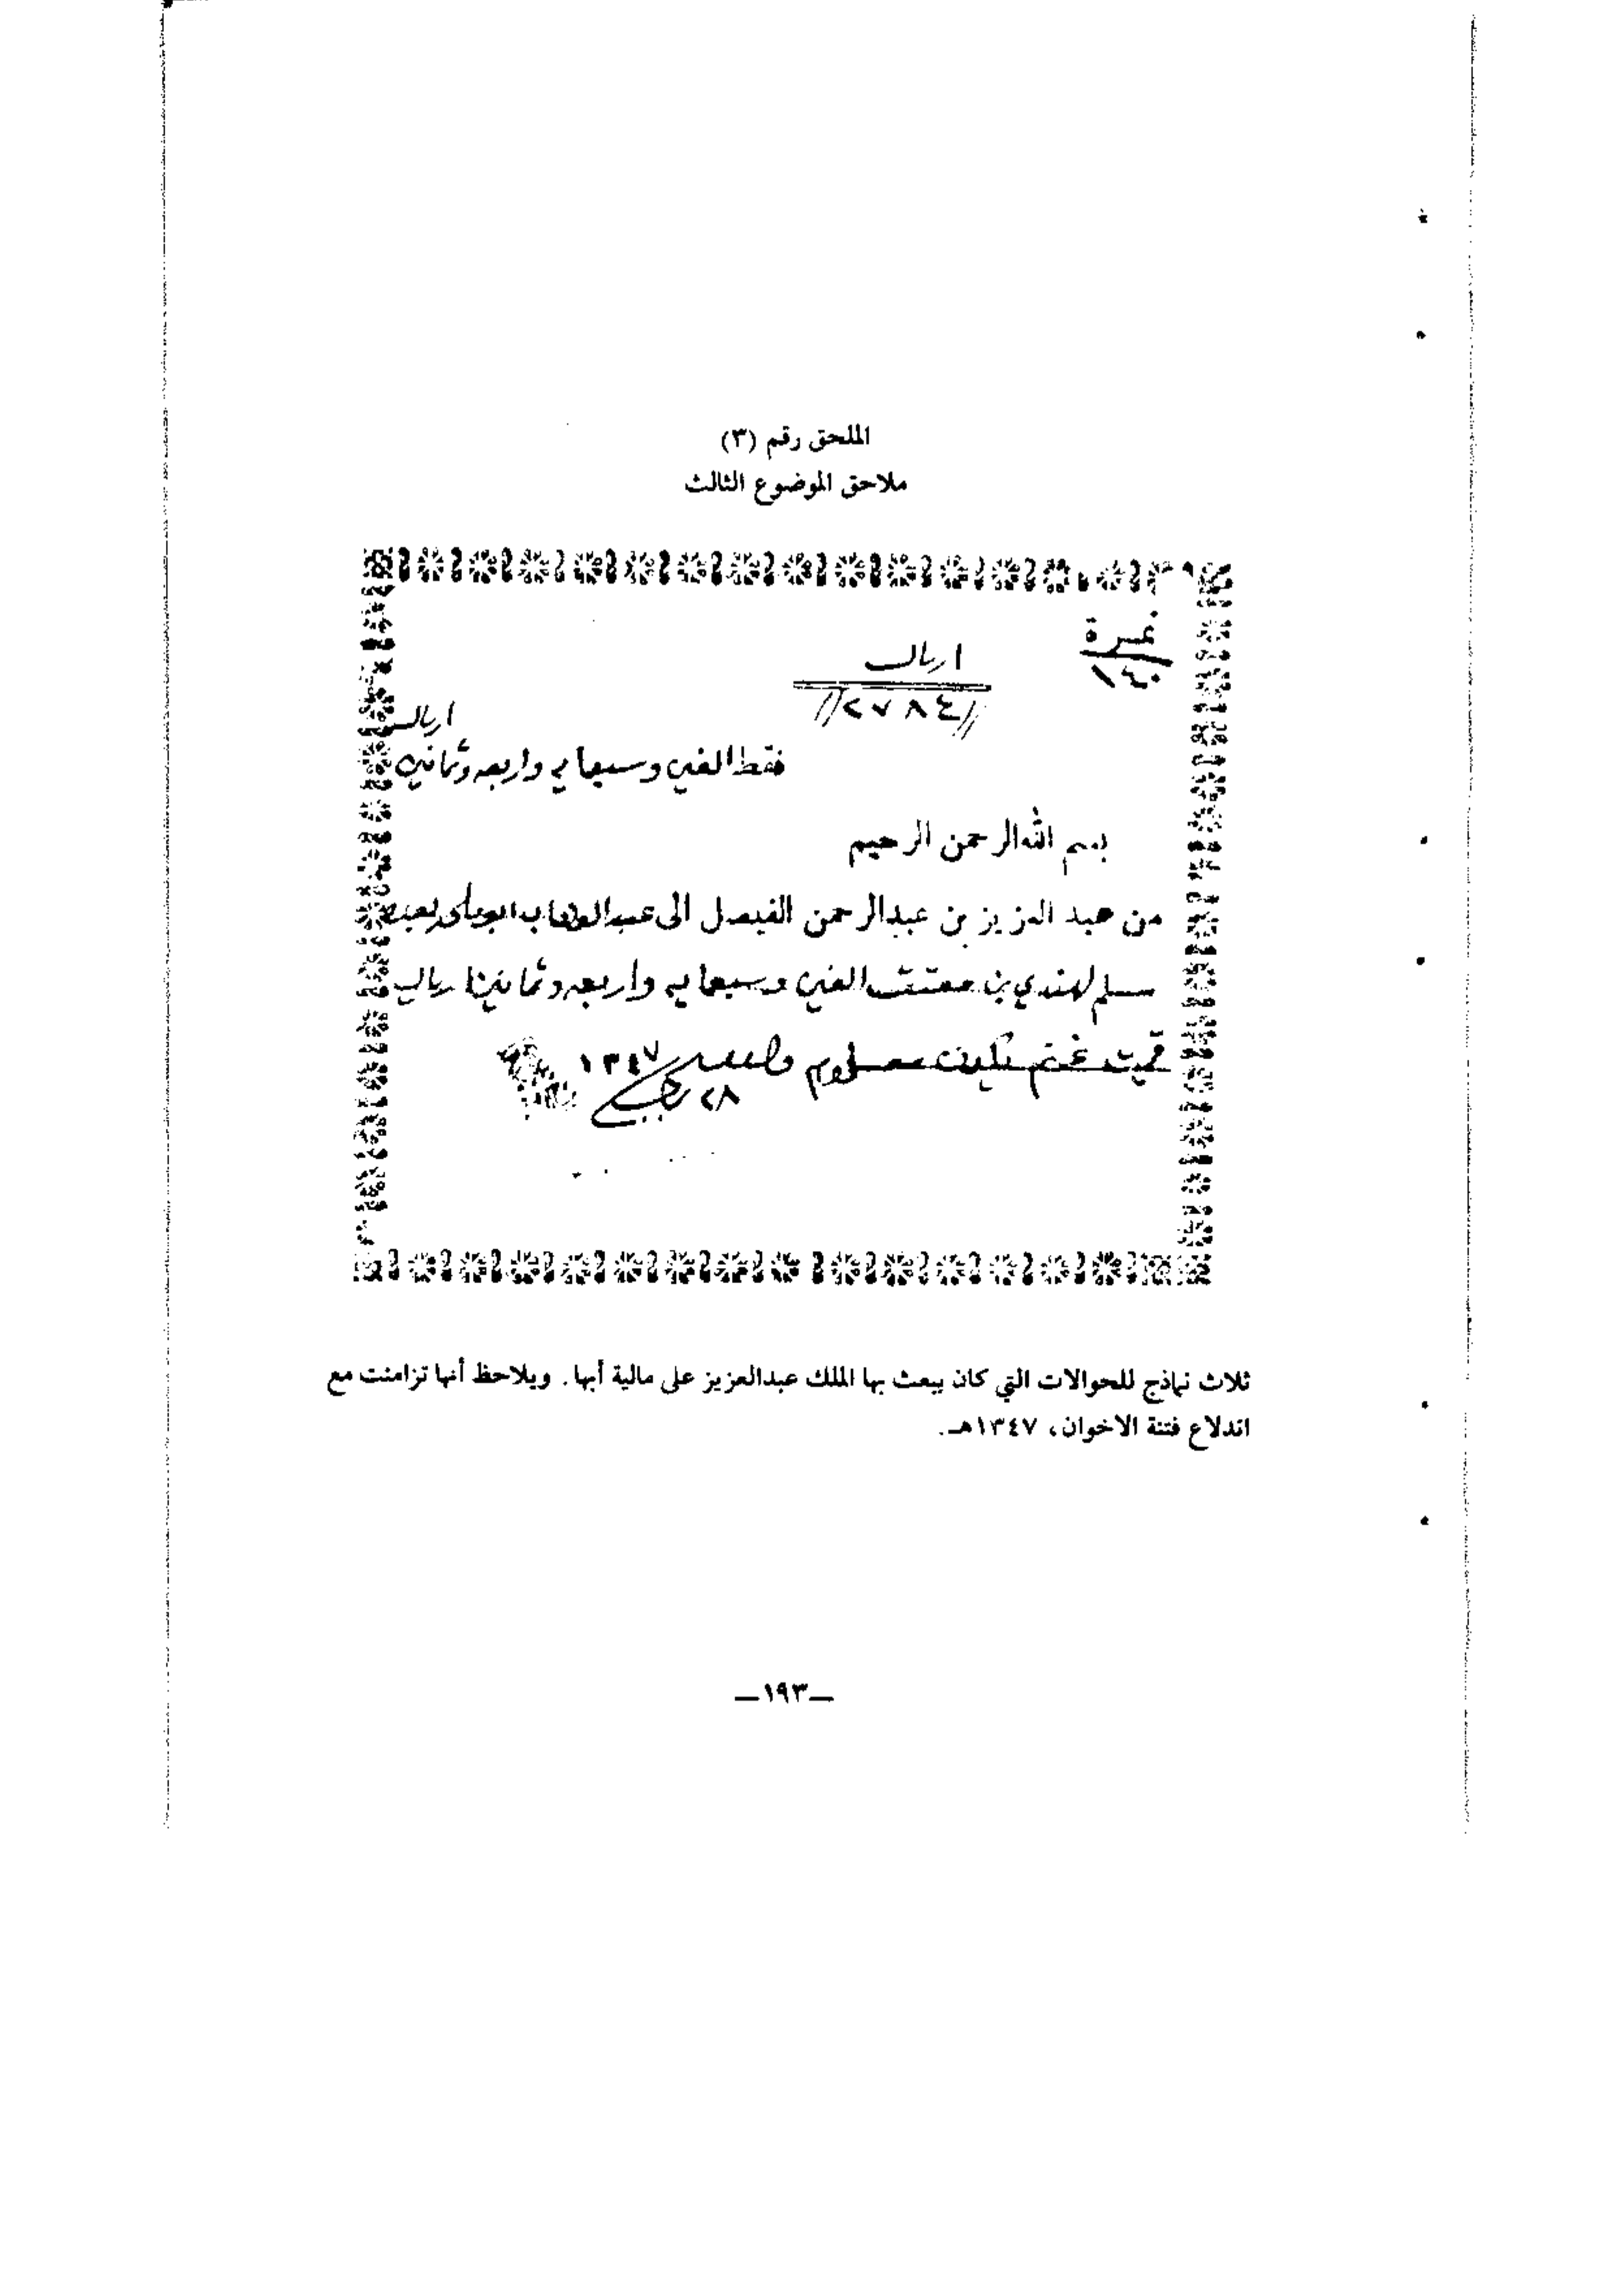 الملحق رقم (٣)
ملاحق الموضوع الثالث
نمرة
١٤٠
اريال
//٢٧٨٤//
اريال
فقط الفين وسبعمايه واربعه وثمانين
بسم الله الرحمن الرحيم
من عبد العزيز بن عبدالرحمن الفيصل الى عبدالوهاب ابوملحه بعده
سلم لهندي بن معتق الفين وسبعمايه واربعه وثمانين اريال
قيمت غنم يكون معلوم والسلام ١٣٤٧
٢٨ رجب
ثلاث نماذج للحوالات التي كان يبعث بها الملك عبدالعزيز على مالية أبها. ويلاحظ أنها تزامنت مع
اندلاع فتنة الاخوان، ١٣٤٧هـ.
—١٩٣—